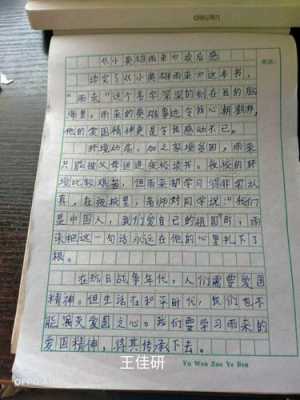 《小英雄雨来》读后感
读完了《小英雄雨来》这本书,
"雨来"这个名字深深的刻在我的脑
海里。雨来的英雄事迹令我心潮澎湃,
他的爱国精神更是令我感动不已。
环境动荡,加之家境贫困,雨来
只能被父母送进夜校读书。夜校的环
境比较艰苦,但雨来却学习得非常认
真。在夜校里,老师对同学说:"我们
是中国人,我们爱自己的祖国。"雨
来把这一句话永远在他的心里扎下了
根。
在抗日战争年代,人们需要爱国
精神。但生活在和平时代,我们也不
能丧失爱国之心。我们要学习雨来的
爱国精神,将其传承下去。
Yu Wen Zuo Ye Ben
王佳研